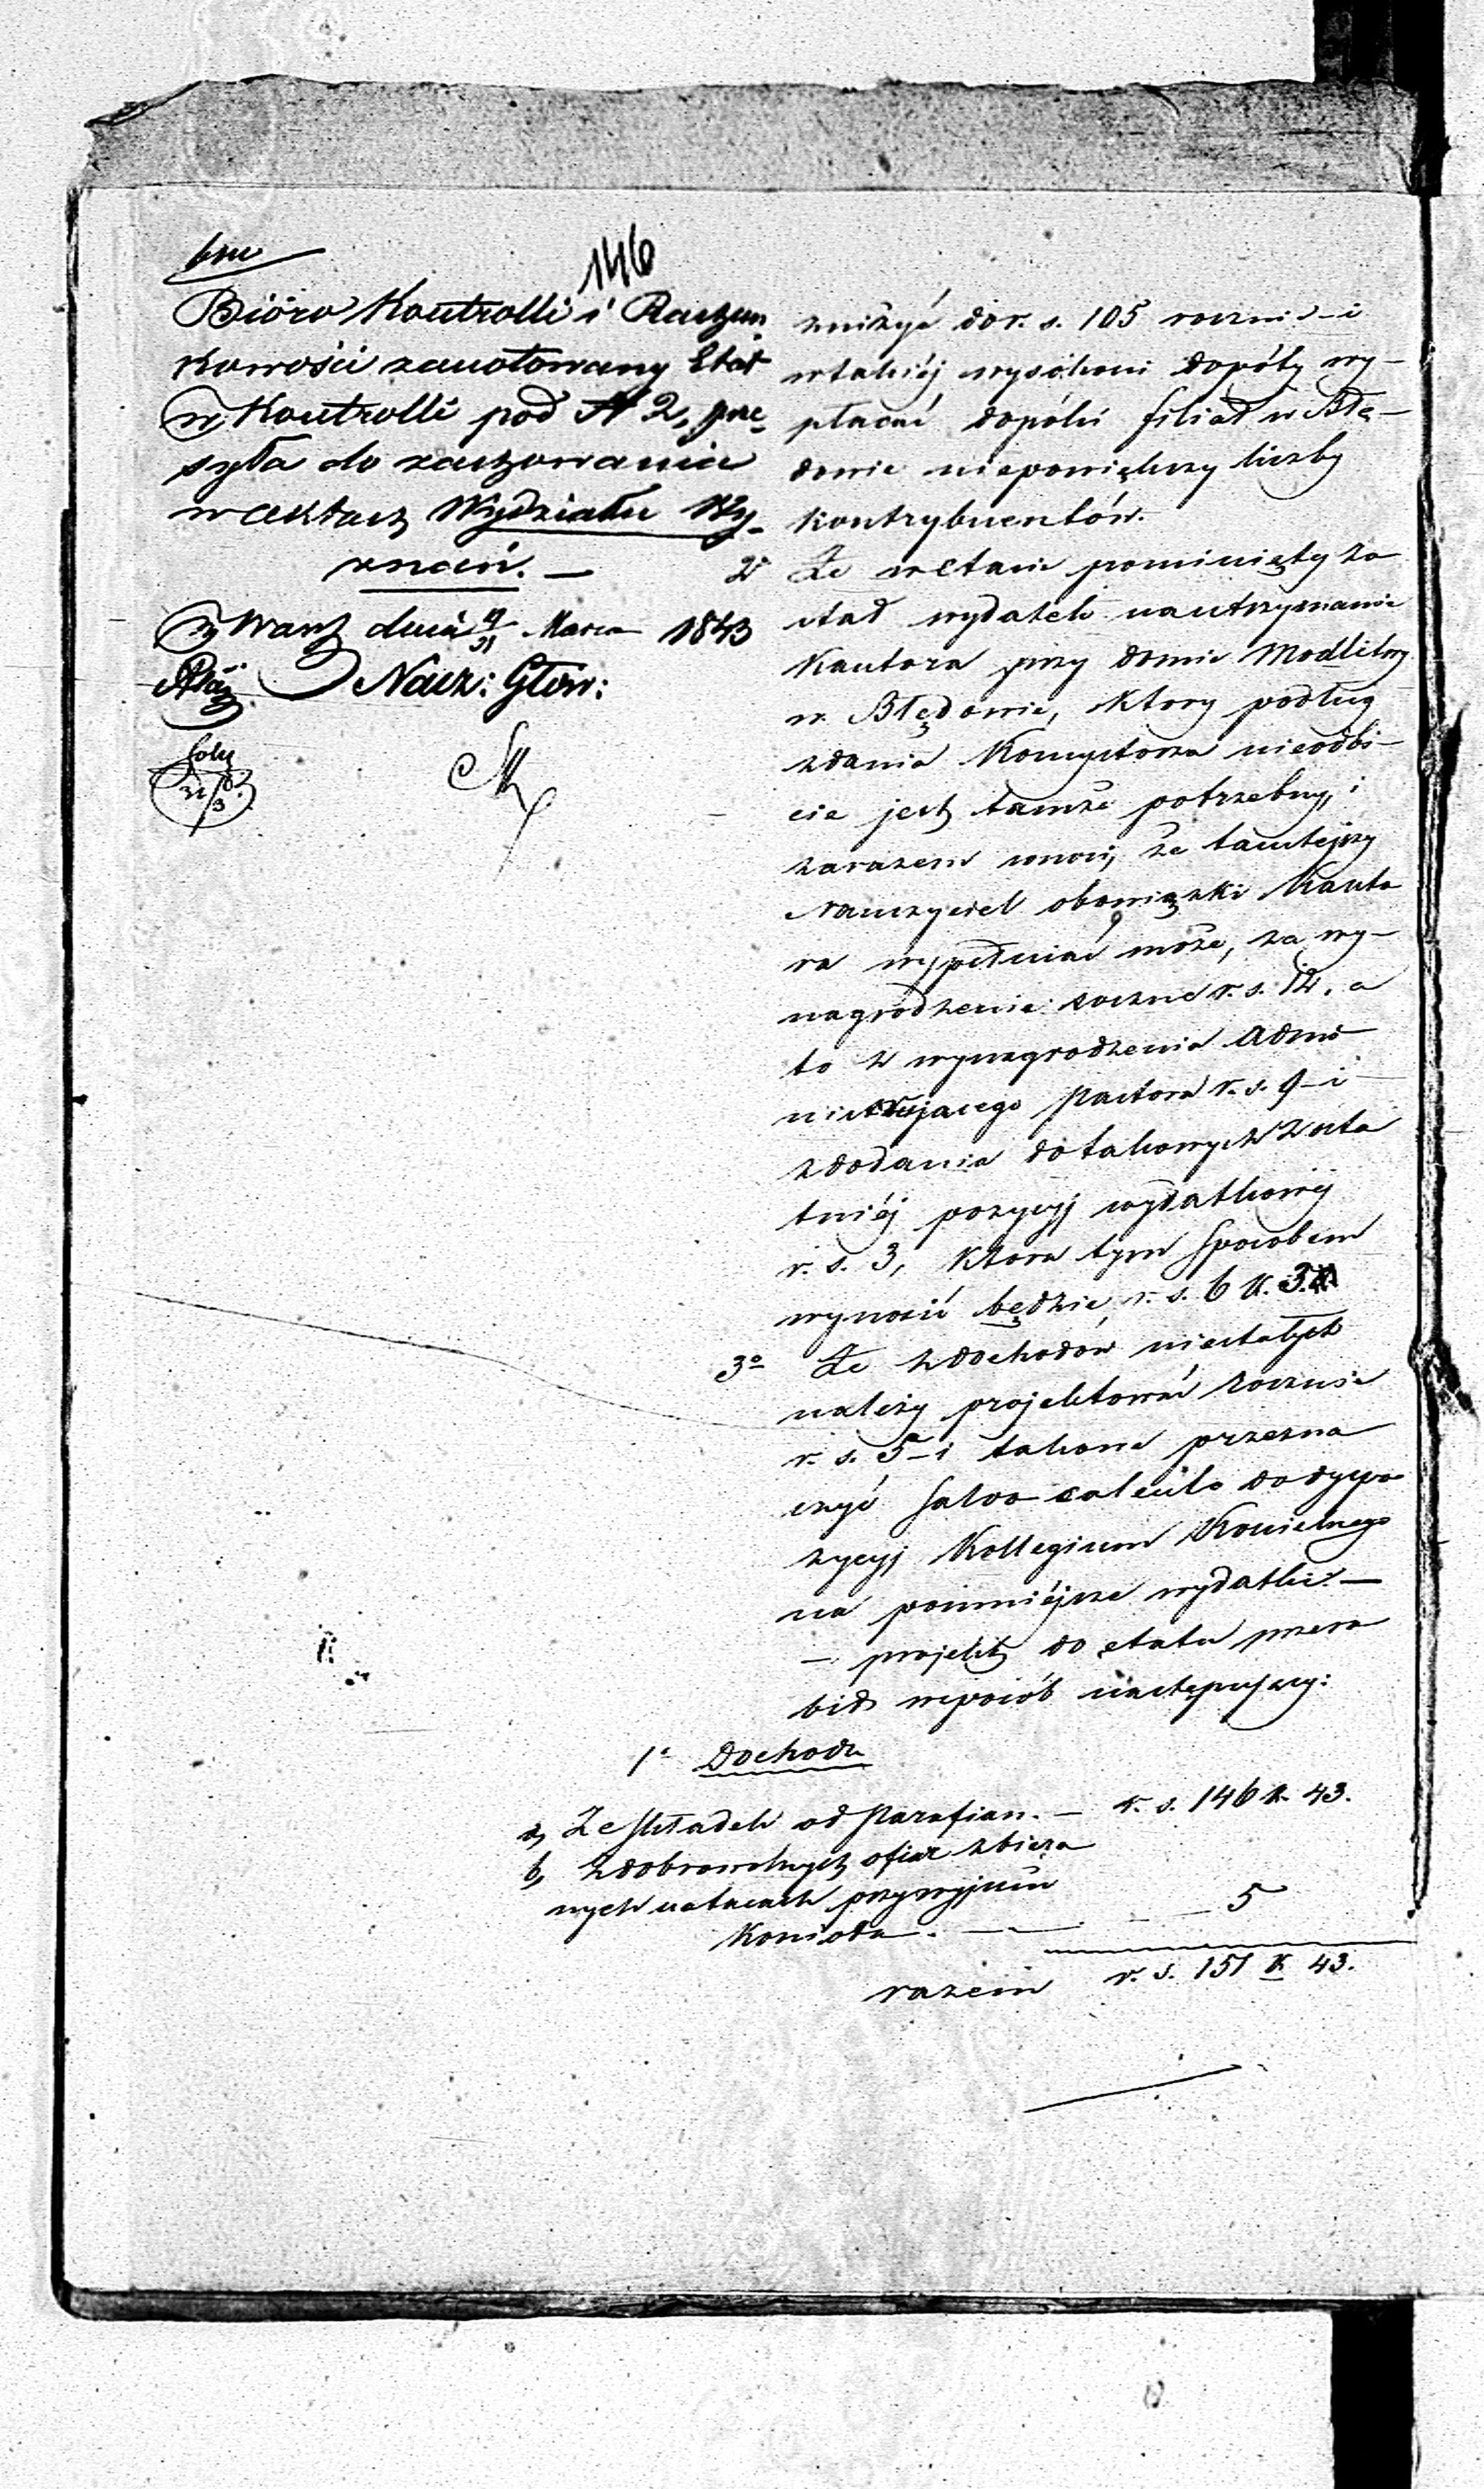 146
Bióro Kontrolli i Rachun
kowości zanotowany Etat
w Kontrolli pod N 2, prze
syła do zachowania
w aktach Wydziału Wy-
znań. —
w Warsz dnia 9/21 Marca 1843
Nacz: Głów:
21/3
zniżyć do r. s. 105 rocznie – i
w takiéj wysokości dopóty wy-
płacać dopóki filiał w Błę-
dowie niepowiększy liczby
kontrybuentów.
2° Że w etacie pominięty zo
stał wydatek na utrzymanie
Kantora przy domie Modlitwy
w Błędowie, który podług
zdania Konsystorza nieodbi-
cie jest tamże potrzebny, i
zarazem wnosi, że tamtejszy
Nauczyciel obowiązki Kanto
ra wypełniać może, za wy-
nagrodzenie roczne r. s. 12. a
to z wynagrodzenia Admi-
nistrującego Pastora r. s. 9 – i
z dodania do takowych z osta
tniéj pozycyj wydatkowéj
r. s. 3, która tym sposobem
wynosić będzie r. s. 6 k. 3.
3° Że z dochodów niestałych
należy projektować rocznie
r. s. 5 – i takowe przezna
czyć salvo calculo do dyspo
zycyj Kollegium Kościelnego
na pomniéjsze wydatki. —
– projekt do etatu przero
bić w sposób następujący:
1° Dochodu
a, Ze składek od Parafian. — r. s. 146 k. 43.
b, Z dobrowolnych ofiar zbiera
nych na tacach przy wyjściu
Kościoła. — 5
razem r. s. 151 k. 43.